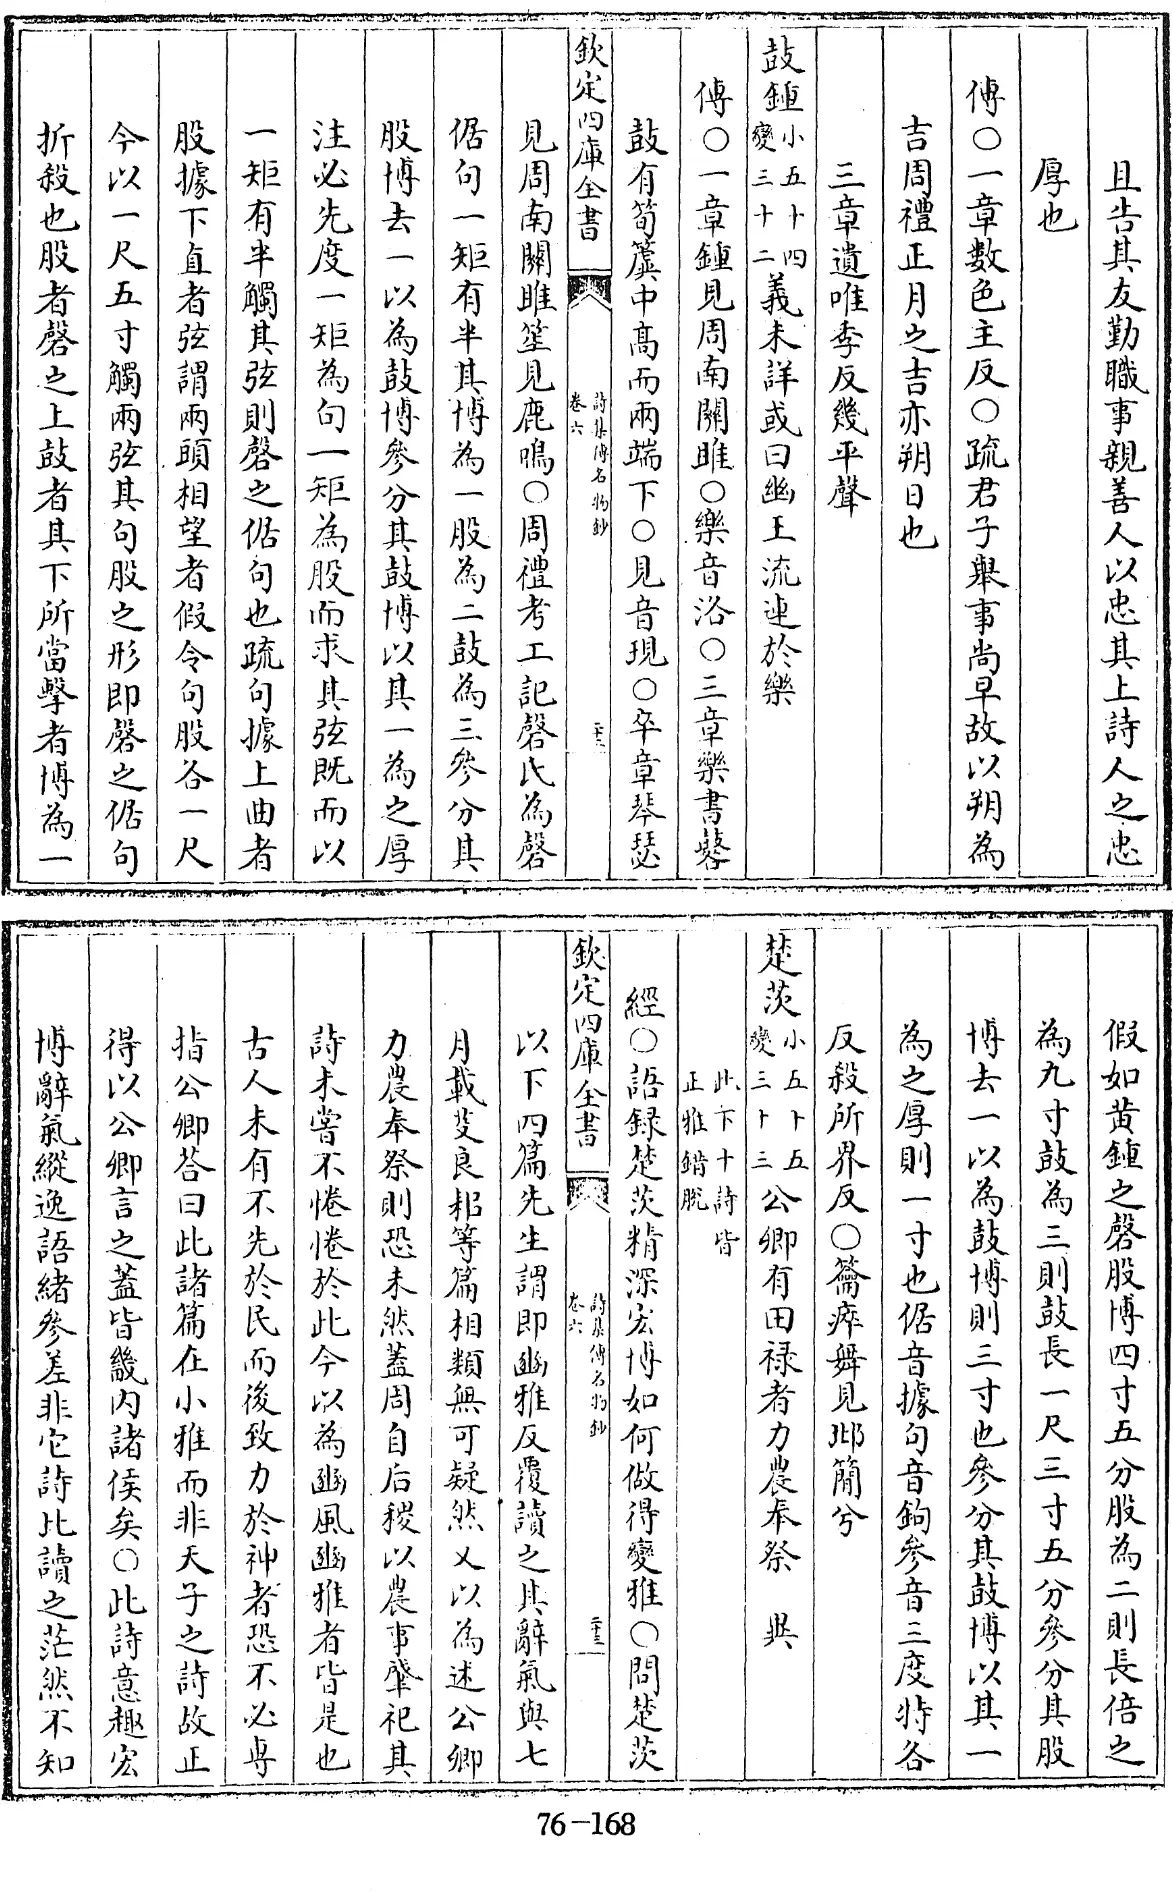 且告其友勤職事親善人以忠其上詩人之忠
厚也
傳○一章數色主反○疏君子舉事尚早故以朔為
吉周禮正月之吉亦朔日也
三章遺唯季反幾平聲
鼓鍾小五十四變三十二義未詳或曰幽王流連於樂
傳○一章鍾見周南關雎○樂音洛○三章樂書鼛
鼓有筍簴中高而兩端下○見音現○卒章琴瑟
欽定四庫全書
詩集傳名物鈔
卷六
二十二
見周南關雎笙見鹿鳴○周禮考工記磬氏為磬
倨句一矩有半其博為一股為二鼓為三參分其
股博去一以為鼓博參分其鼓博以其一為之厚
注必先度一矩為句一矩為股而求其弦既而以
一矩有半觸其弦則磬之倨句也疏句據上曲者
股據下直者弦謂兩頭相望者假令句股各一尺
今以一尺五寸觸兩弦其句股之形即磬之倨句
折殺也股者磬之上鼓者其下所當擊者博為一
假如黃鍾之磬股博四寸五分股為二則長倍之
為九寸鼓為三則鼓長一尺三寸五分參分其股
博去一以為鼓博則三寸也參分其鼓博以其一
為之厚則一寸也倨音據句音鉤參音三度待各
反殺所界反○籥瘁舞見邶簡兮
楚茨小五十五變三十三公卿有田祿者力農奉祭 興
此下十詩皆
正雅錯脫
經○語錄楚茨精深宏博如何做得變雅○問楚茨
欽定四庫全書
詩集傳名物鈔
卷六
二十三
以下四篇先生謂即豳雅反覆讀之其辭氣與七
月載芟良耜等篇相類無可疑然又以為述公卿
力農奉祭則恐未然蓋周自后稷以農事肇祀其
詩未嘗不惓惓於此今以為豳風豳雅者皆是也
古人未有不先於民而後致力於神者恐不必專
指公卿荅曰此諸篇在小雅而非天子之詩故正
得以公卿言之蓋皆畿內諸侯矣○此詩意趣宏
博辭氣縱逸語緒參差非它詩比讀之茫然不知
76-168